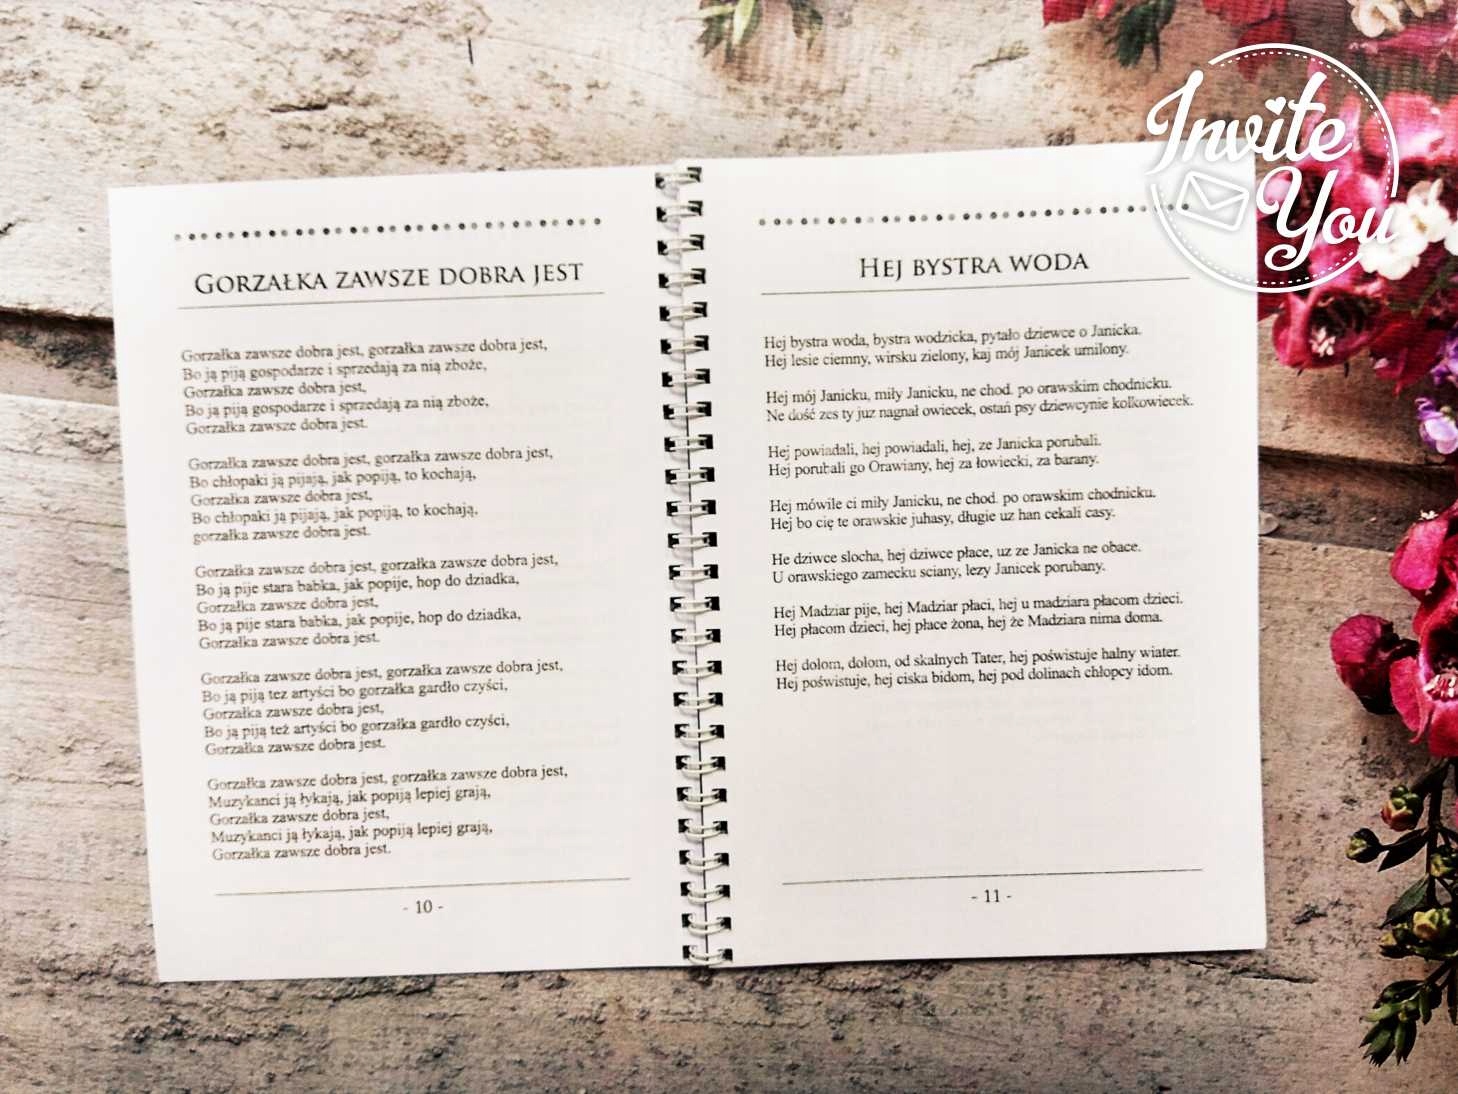 Invite
You
GORZAŁKA ZAWSZE DOBRA JEST
Gorzałka zawsze dobra jest, gorzałka zawsze dobra jest,
Bo ją piją gospodarze i sprzedają za nią zboże,
Gorzałka zawsze dobra jest,
Bo ją piją gospodarze i sprzedają za nią zboże,
Gorzałka zawsze dobra jest.
Gorzałka zawsze dobra jest, gorzałka zawsze dobra jest,
Bo chłopaki ją pijają, jak popiją, to kochają,
Gorzałka zawsze dobra jest,
Bo chłopaki ją pijają, jak popiją, to kochają,
gorzałka zawsze dobra jest.
Gorzałka zawsze dobra jest, gorzałka zawsze dobra jest,
Bo ją pije stara babka, jak popije, hop do dziadka,
Gorzałka zawsze dobra jest,
Bo ją pije stara babka, jak popije, hop do dziadka,
Gorzałka zawsze dobra jest.
Gorzałka zawsze dobra jest, gorzałka zawsze dobra jest,
Bo ją piją tez artyści bo gorzałka gardło czyści,
Gorzałka zawsze dobra jest,
Bo ją piją też artyści bo gorzałka gardło czyści,
Gorzałka zawsze dobra jest.
Gorzałka zawsze dobra jest, gorzałka zawsze dobra jest,
Muzykanci ją łykają, jak popiją lepiej grają,
Gorzałka zawsze dobra jest,
Muzykanci ją łykają, jak popiją lepiej grają,
Gorzałka zawsze dobra jest.
- 10 -
HEJ BYSTRA WODA
Hej bystra woda, bystra wodzicka, pytało dziewce o Janicka.
Hej lesie ciemny, wirsku zielony, kaj mój Janicek umilony.
Hej mój Janicku, miły Janicku, ne chod. po orawskim chodnicku.
Ne dość zes ty juz nagnał owiecek, ostań psy dziewcynie kolkowiecek.
Hej powiadali, hej powiadali, hej, ze Janicka porubali.
Hej porubali go Orawiany, hej za łowiecki, za barany.
Hej mówile ci miły Janicku, ne chod. po orawskim chodnicku.
Hej bo cię te orawskie juhasy, długie uz han cekali casy.
He dziwce slocha, hej dziwce płace, uz ze Janicka ne obace.
U orawskiego zamecku sciany, lezy Janicek porubany.
Hej Madziar pije, hej Madziar płaci, hej u madziara płacom dzieci.
Hej płacom dzieci, hej płace żona, hej że Madziara nima doma.
Hej dolom, dolom, od skalnych Tater, hej poświstuje halny wiater.
Hej poświstuje, hej ciska bidom, hej pod dolinach chłopcy idom.
- 11 -